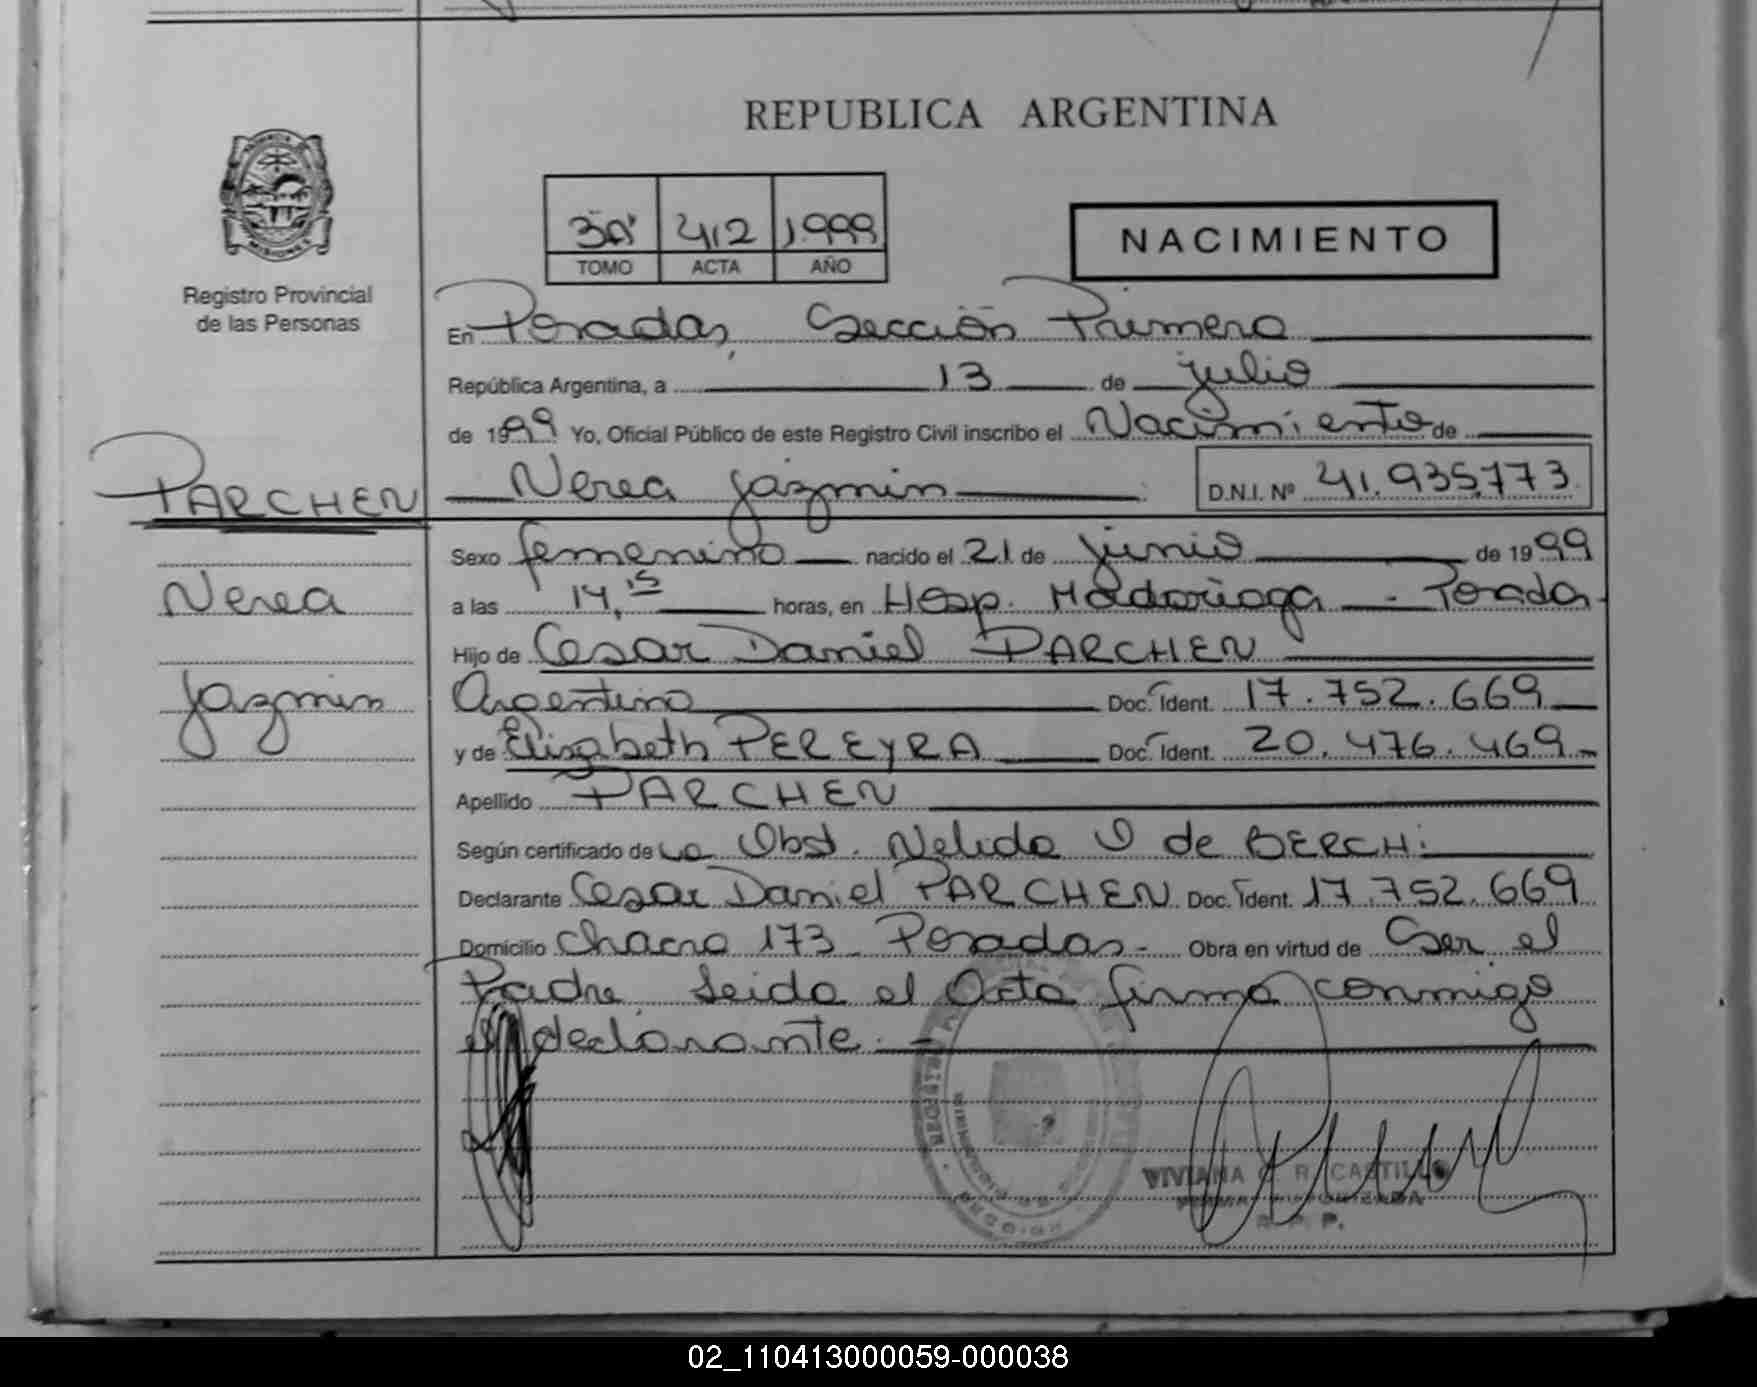 REPUBLICA ARGENTINA
3A' 412 1999
TOMO ACTA AÑO
NACIMIENTO
Registro Provincial
de las Personas
En Posadas, Sección Primera
República Argentina, a 13 de julio
de 1999 Yo, Oficial Público de este Registro Civil inscribo el Nacimiento de
PARCHEN
Nerea Jazmin D.N.I. Nº 41.935.773
Sexo femenino nacido el 21 de junio de 1999
Nerea
a las 14,15 horas, en Hosp. Madariaga - Posadas
Hijo de Cesar Daniel PARCHEN
Jazmin
Argentino Doc. Ident. 17.752.669
y de Elizabeth PEREYRA Doc. Ident. 20.476.469
Apellido PARCHEN
Según certificado de La Obst. Nelida O de BERCHI
Declarante Cesar Daniel PARCHEN Doc. Ident. 17.752.669
Domicilio Chacra 173 Posadas.- Obra en virtud de Ser el
Padre Leida el Acta firma conmigo
el declarante.-
VIVIANA R. CASTILLO
FIRMA AUTORIZADA
R. P. P.
02_110413000059-000038